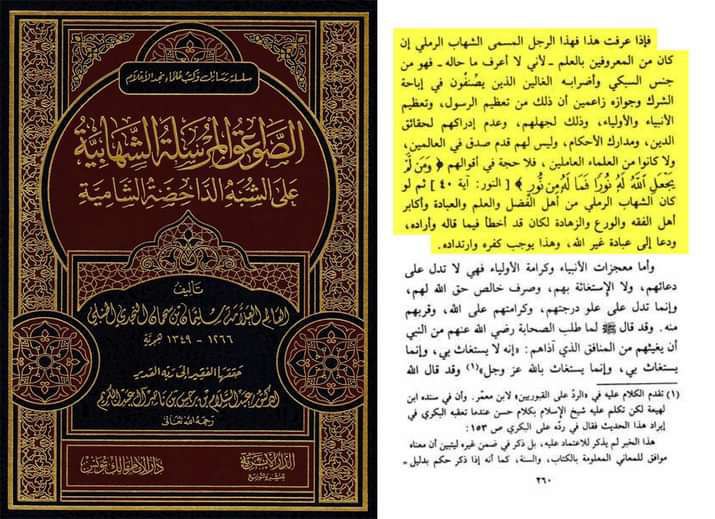 سلسلة رسائل وكتب علماء نجد الأعلام
الصواعق المرسلة الشهابية
على الشبه الداحضة الشامية
تأليف
العالم العلامة سليمان بن سحمان النجدي الحنبلي
١٢٦٦ - ١٣٤٩ هجرية
حققها الفقير إلى ربه القدير
الدكتور عبد السلام بن برجس بن ناصر آل عبد الكريم
رحمه الله تعالى
الدار الأثرية
دار الإمام مالك تونس
فإذا عرفت هذا فهذا الرجل المسمى الشهاب الرملي إن
كان من المعروفين بالعلم - لأني لا أعرف ما حاله - فهو من
جنس السبكي وأضرابه الغالين الذين يصنّفون في إباحة
الشرك وجوازه زاعمين أن ذلك من تعظيم الرسول، وتعظيم
الأنبياء والأولياء، وذلك لجهلهم، وعدم إدراكهم لحقائق
الدين، ومدارك الأحكام، وليس لهم قدم صدق في العالمين،
ولا كانوا من العلماء العاملين، فلا حجة في أقوالهم ﴿وَمَن لَّمْ
يَجْعَلِ اللَّهُ لَهُ نُورًا فَمَا لَهُ مِن نُّورٍ﴾ [النور: آية ٤٠] ثم لو
كان الشهاب الرملي من أهل الفضل والعلم والعبادة وأكابر
أهل الفقه والورع والزهادة لكان قد أخطأ فيما قاله وأراده،
ودعا إلى عبادة غير الله، وهذا يوجب كفره وارتداده.
وأما معجزات الأنبياء وكرامة الأولياء فهي لا تدل على
دعائهم، ولا الإستغاثة بهم، وصرف خالص حق الله لهم،
وإنما تدل على علو درجتهم، وكرامتهم على الله، وقربهم
منه. وقد قال ﷺ لما طلب الصحابة رضي الله عنهم من النبي
أن يغيثهم من المنافق الذي آذاهم: «إنه لا يستغاث بي، وإنما
يستغاث بي، وإنما يستغاث بالله عز وجل»(١) وقد قال الله
(١) تقدم الكلام عليه في «الردّ على القبوريين» لابن معمّر. وأن في سنده ابن
لهيعة لكن تكلم عليه شيخ الإسلام بكلام حسن عندما تعقبه البكري في
إيراد هذا الحديث فقال في ردّه على البكري ص ١٥٣:
هذا الخبر لم يذكر للاعتماد عليه، بل ذكر في ضمن غيره ليتبين أن معناه
موافق للمعاني المعلومة بالكتاب، والسنة، كما أنه إذا ذكر حكم بدليل -
٢٦٠